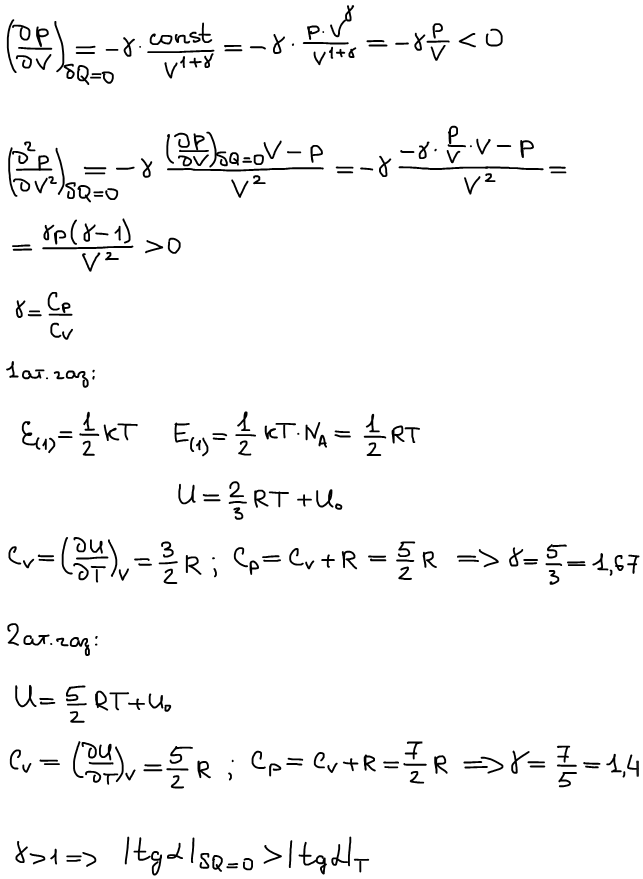 (∂P/∂V)_δQ=0 = -γ · const/V^(1+γ) = -γ · P·V^γ/V^(1+γ) = -γ P/V < 0
(∂²P/∂V²)_δQ=0 = -γ ((∂P/∂V)_δQ=0 V - P)/V² = -γ (-γ · P/V · V - P)/V² =
= γP(γ-1)/V² > 0
γ = Cp/Cv
1 ат. газ:
ε(1) = 1/2 kT   E(1) = 1/2 kT · N_A = 1/2 RT
U = 2/3 RT + U₀
Cv = (∂U/∂T)_V = 3/2 R ; Cp = Cv + R = 5/2 R => γ = 5/3 = 1,67
2 ат. газ:
U = 5/2 RT + U₀
Cv = (∂U/∂T)_V = 5/2 R ; Cp = Cv + R = 7/2 R => γ = 7/5 = 1,4
γ > 1 => |tg α|_δQ=0 > |tg α|_T